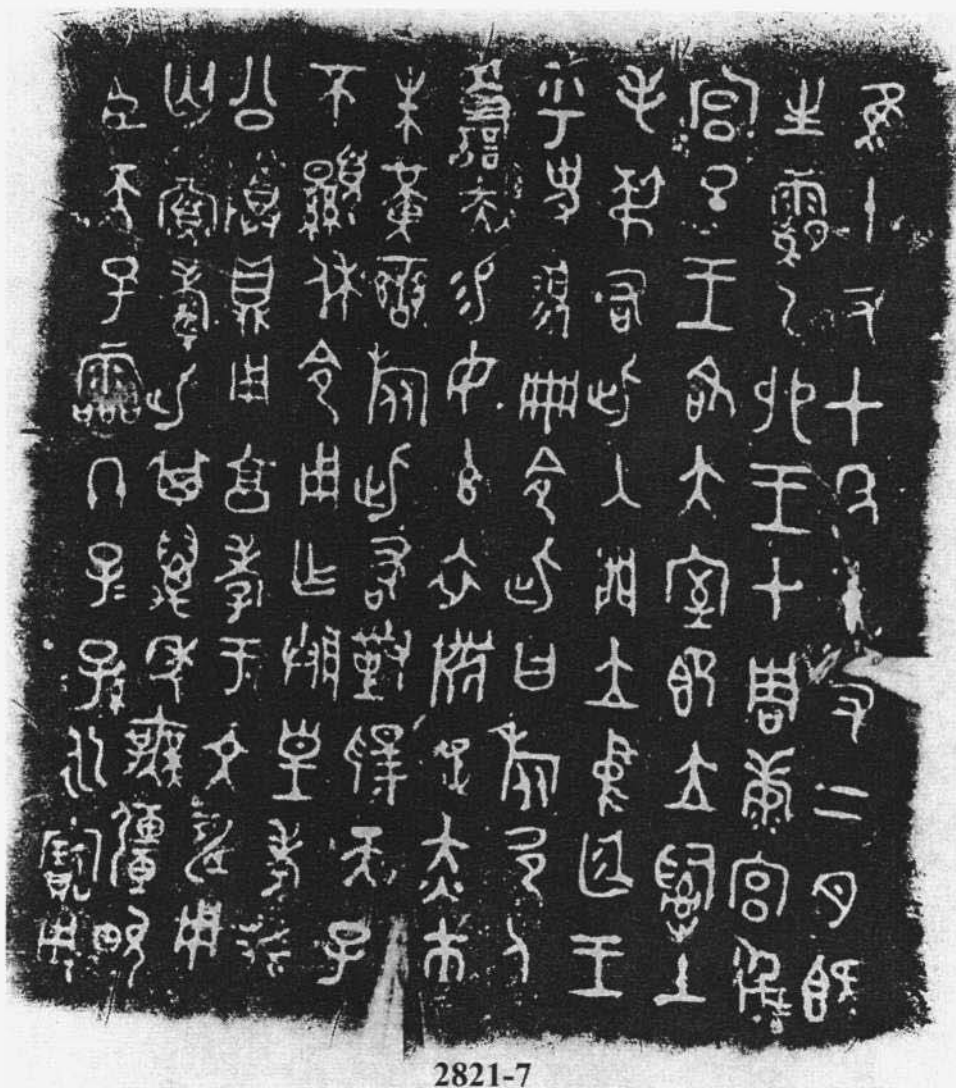 隹十又七年十又二月既
生霸乙卯王才周康宮𢓊
宮旦王各大室即立𤔲土
毛弔右此入門立中廷王
乎史翏冊令此曰旅邑人
善夫易女玄衣黹屯赤巿
朱黃䜌旅此敢對揚天子
不顯休令用乍朕皇考癸
公尊鼎用享孝于文申用
匄眉壽此其萬年無疆畯
臣天子霝冬子=孫=永寶用
2821-7